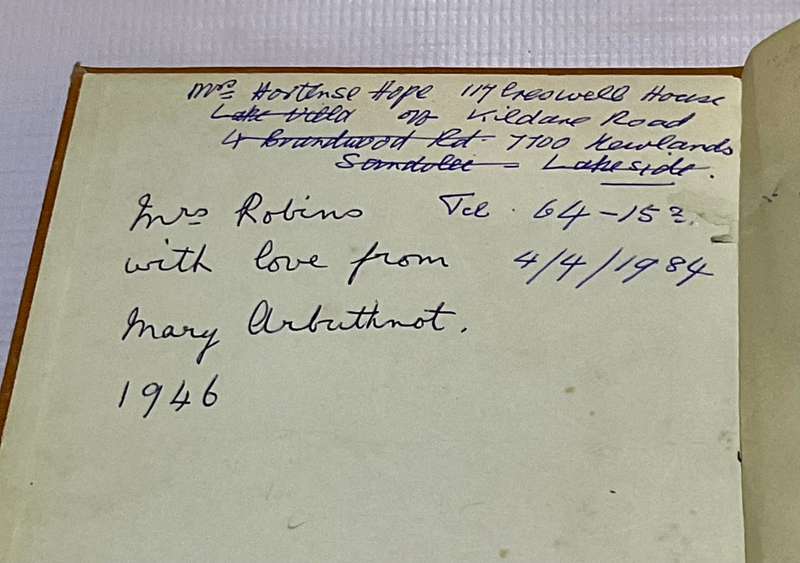 Mrs Hortense Hope 117 Creswell House
Lake Villa off Kildare Road
4 Brandwood Rd. 7700 Newlands
Lakeside.
Mrs Robins Tel. 64-15
with love from 4/4/1984
Mary Arbuthnot.
1946